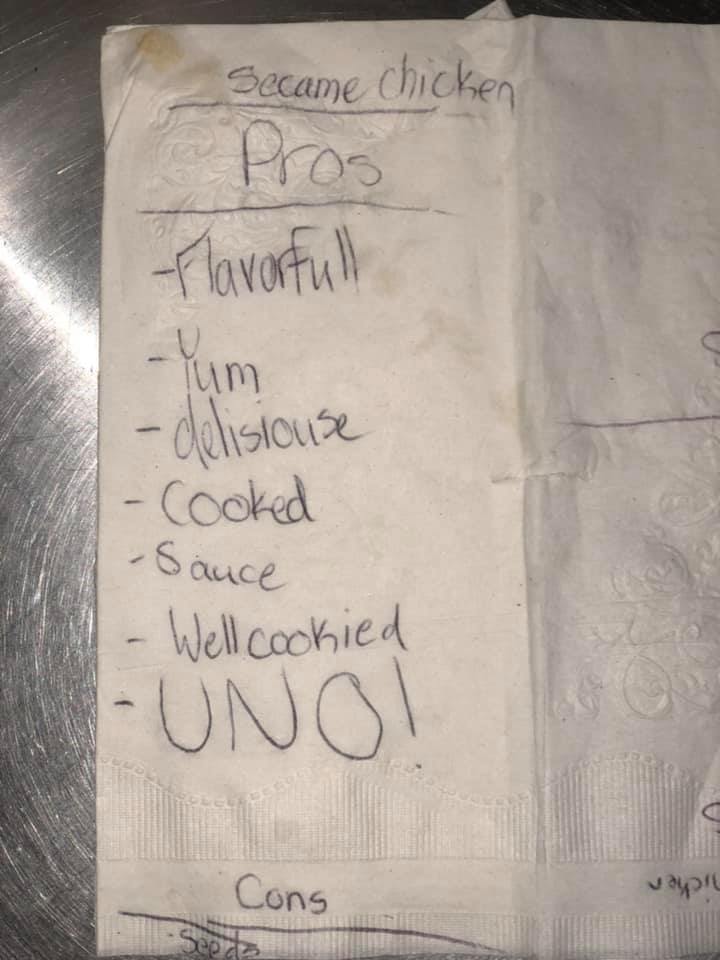 Secame chicken
Pros
- Flavorfull
- Yum
- delisiouse
- Cooked
- Sauce
- Wellcookied
- UNO!
Cons
- Seeds